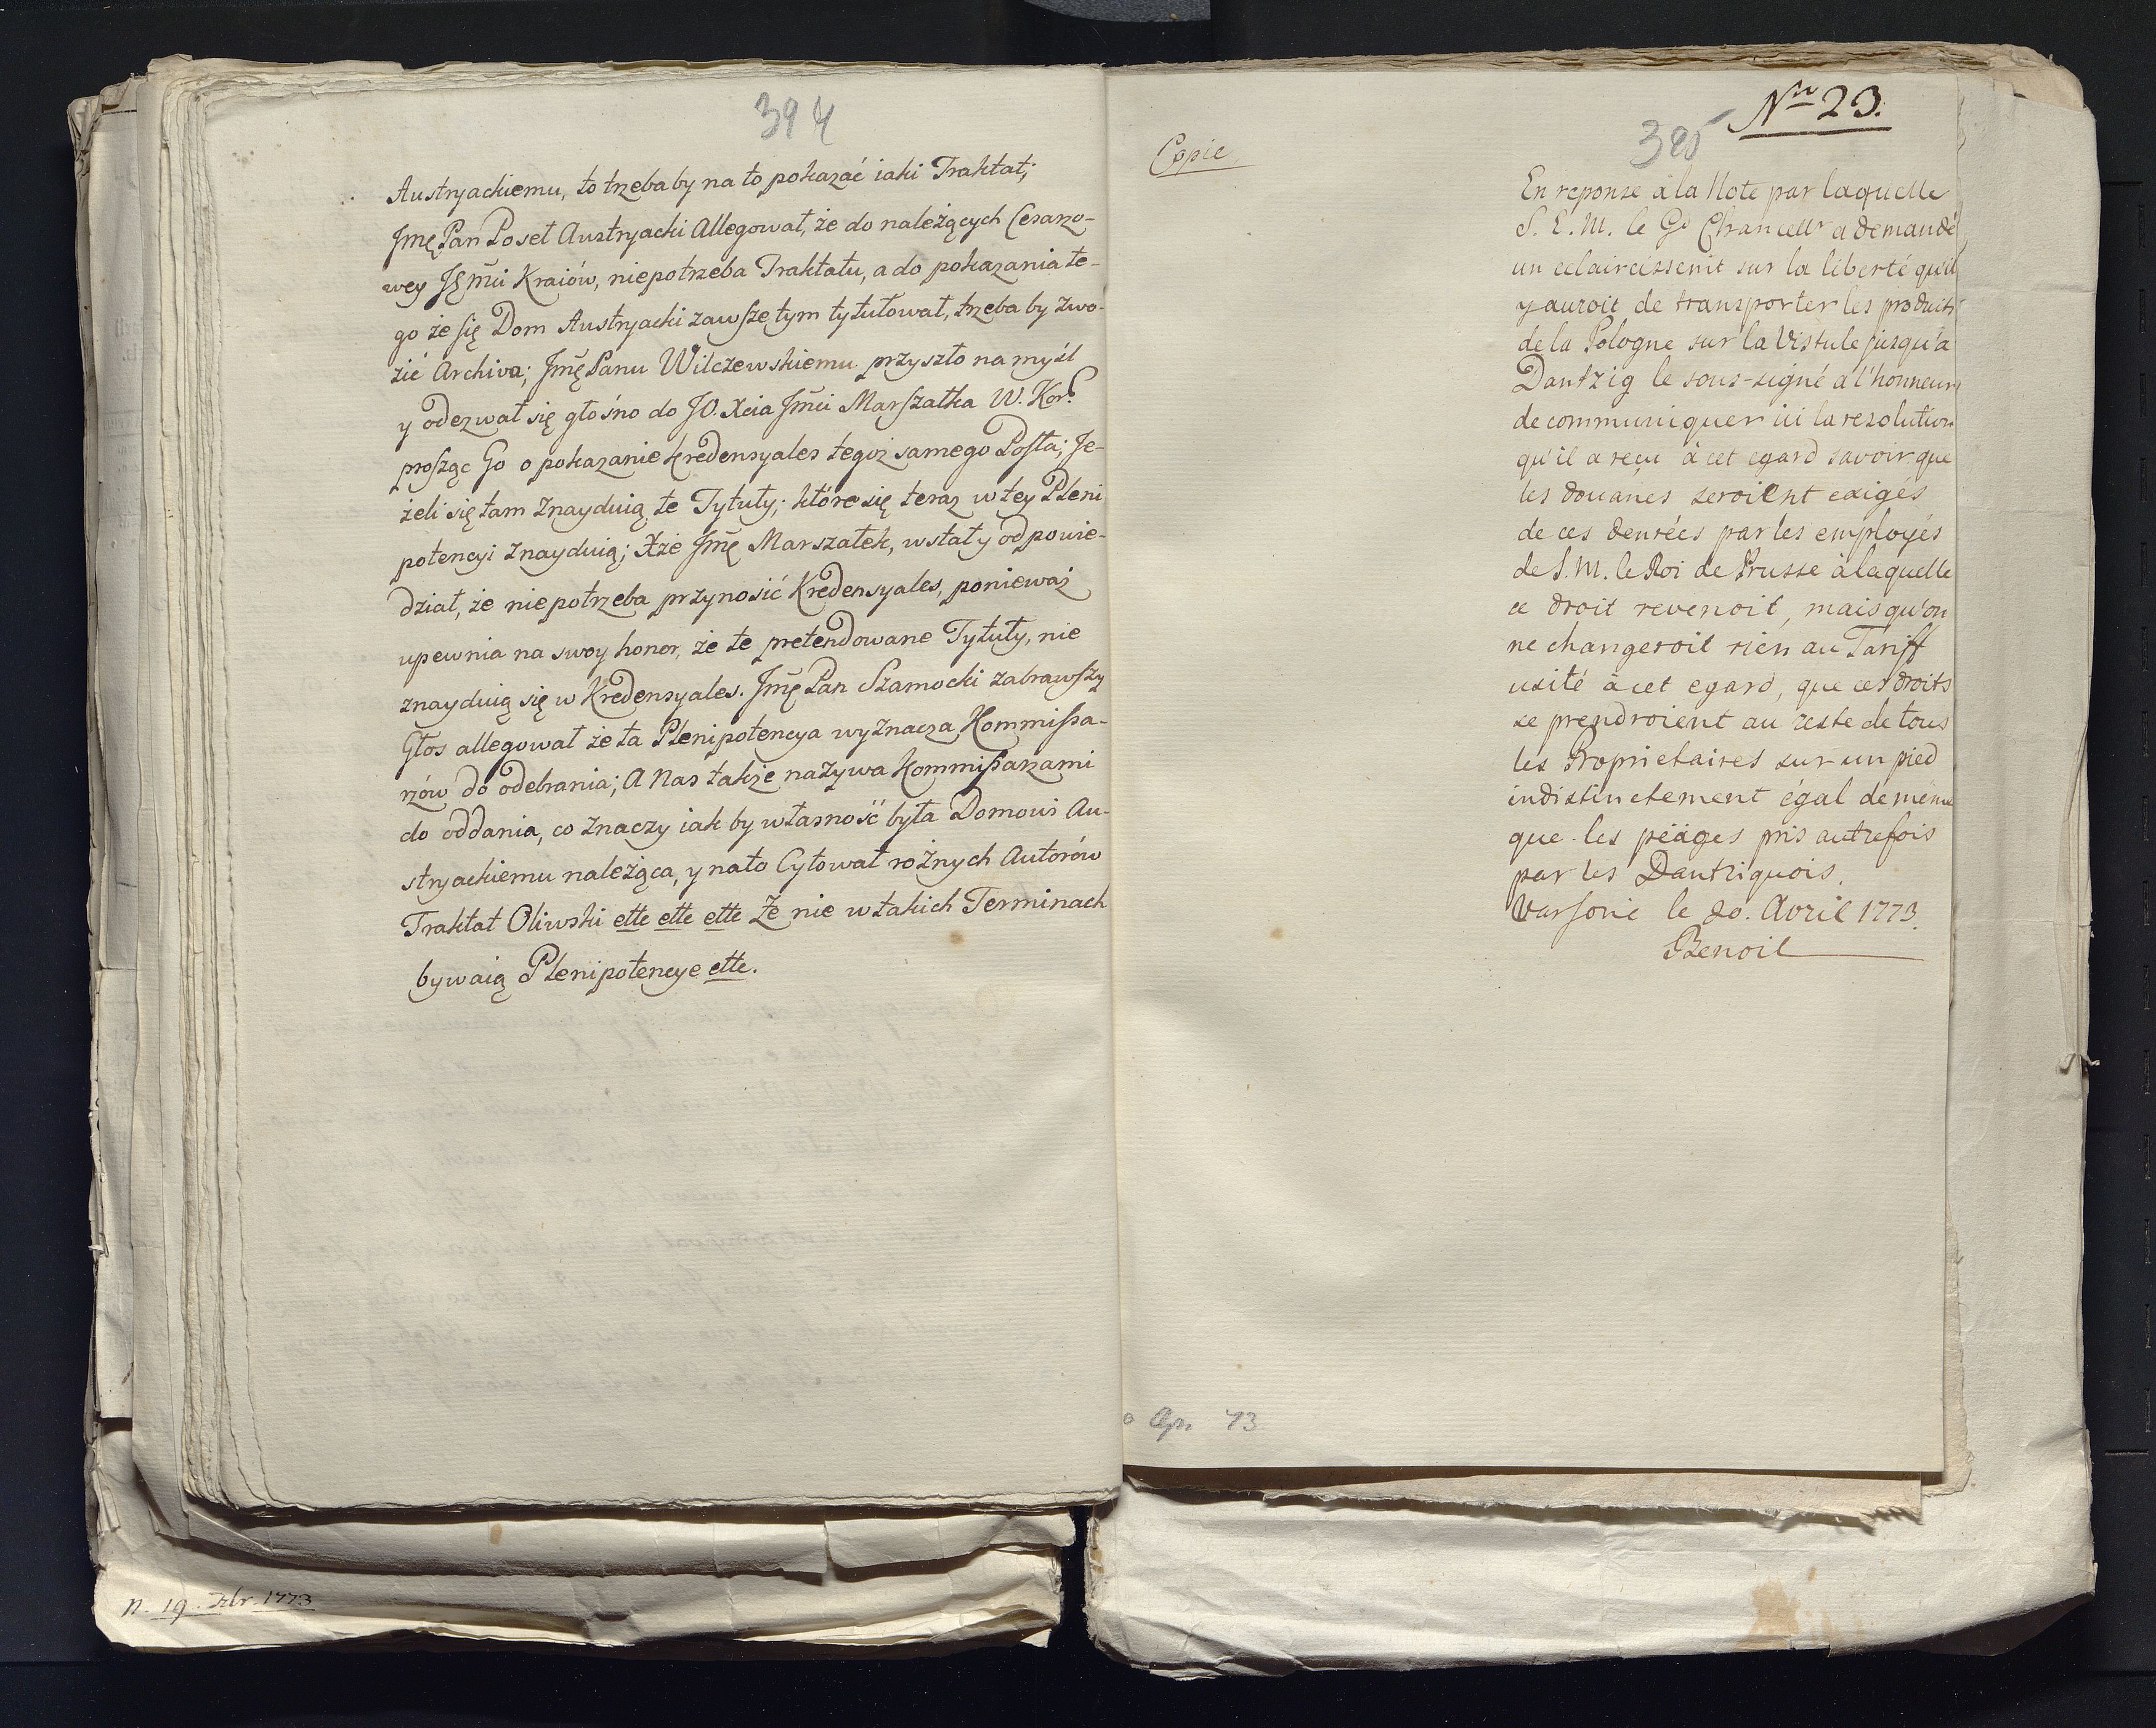 394
Austryackiemu, to trzeba by na to pokazać iaki Traktat;
Jmę Pan Poseł Austryacki Allegował, że do należących Cesarzo-
wey Jęm̃ci Kraiów, niepotrzeba Traktatu, a do pokazania te-
go że się Dom Austryacki zawsze tym tytułował, trzeba by zwo-
zić Archiva; Jmę Panu Wilczewskiemu przyszło na myśl
y odezwał się głośno do JO. Xcia Jm̃ci Marszałka W. Kor:
prosząc Go o pokazanie kredensyales tegoż samego Posła; Je-
żeli się tam znayduią te Tytuły; które się teraz w tey Pleni
potencyi znayduią; Xże Jmę Marszałek, wstał y odpowie-
dział, że niepotrzeba przynosić Kredensyales, ponieważ
upewnia na swoy honor, że te pretendowane Tytuły, nie
znayduią się w Kredensyales. Jmę Pan Szamocki zabrawszy
Głos allegował że ta Plenipotencya wyznacza Kommissa-
rzów do odebrania; A Nas także nazywa Kommissarzami
do oddania, co znaczy iak by własność była Domowi Au-
stryackiemu należąca, y na to Cytował rożnych Autorów
Traktat Oliwski ette ette ette Że nie w takich Terminach
bywaią Plenipotencye ette.
n. 19. Xbr. 1773
Nro 23.
395
Copie
En reponse à la Note par laquelle
S. E. M. le Gd Chancellr a demandé
un eclaircissemt sur la liberté qu'il
y auroit de transporter les produits
de la Pologne sur la Vistule jusqu'à
Dantzig le sous-signé a l'honneur
de communiquer ici la resolution
qu'il a reçu à cet egard savoir que
les douanes seroient exigés
de ces denrées par les employés
de S. M. le Roi de Prusse à laquelle
ce droit revenoit, mais qu'on
ne changeroit rien au Tariff
usité à cet egard, que ces droits
se prendroient au reste de tous
les Proprietaires sur un pied
indistinctement égal de même
que les péäges pris autrefois
par les Dantziquois.
Varsovie le 20. Avril 1773.
Benoit
Apr 73